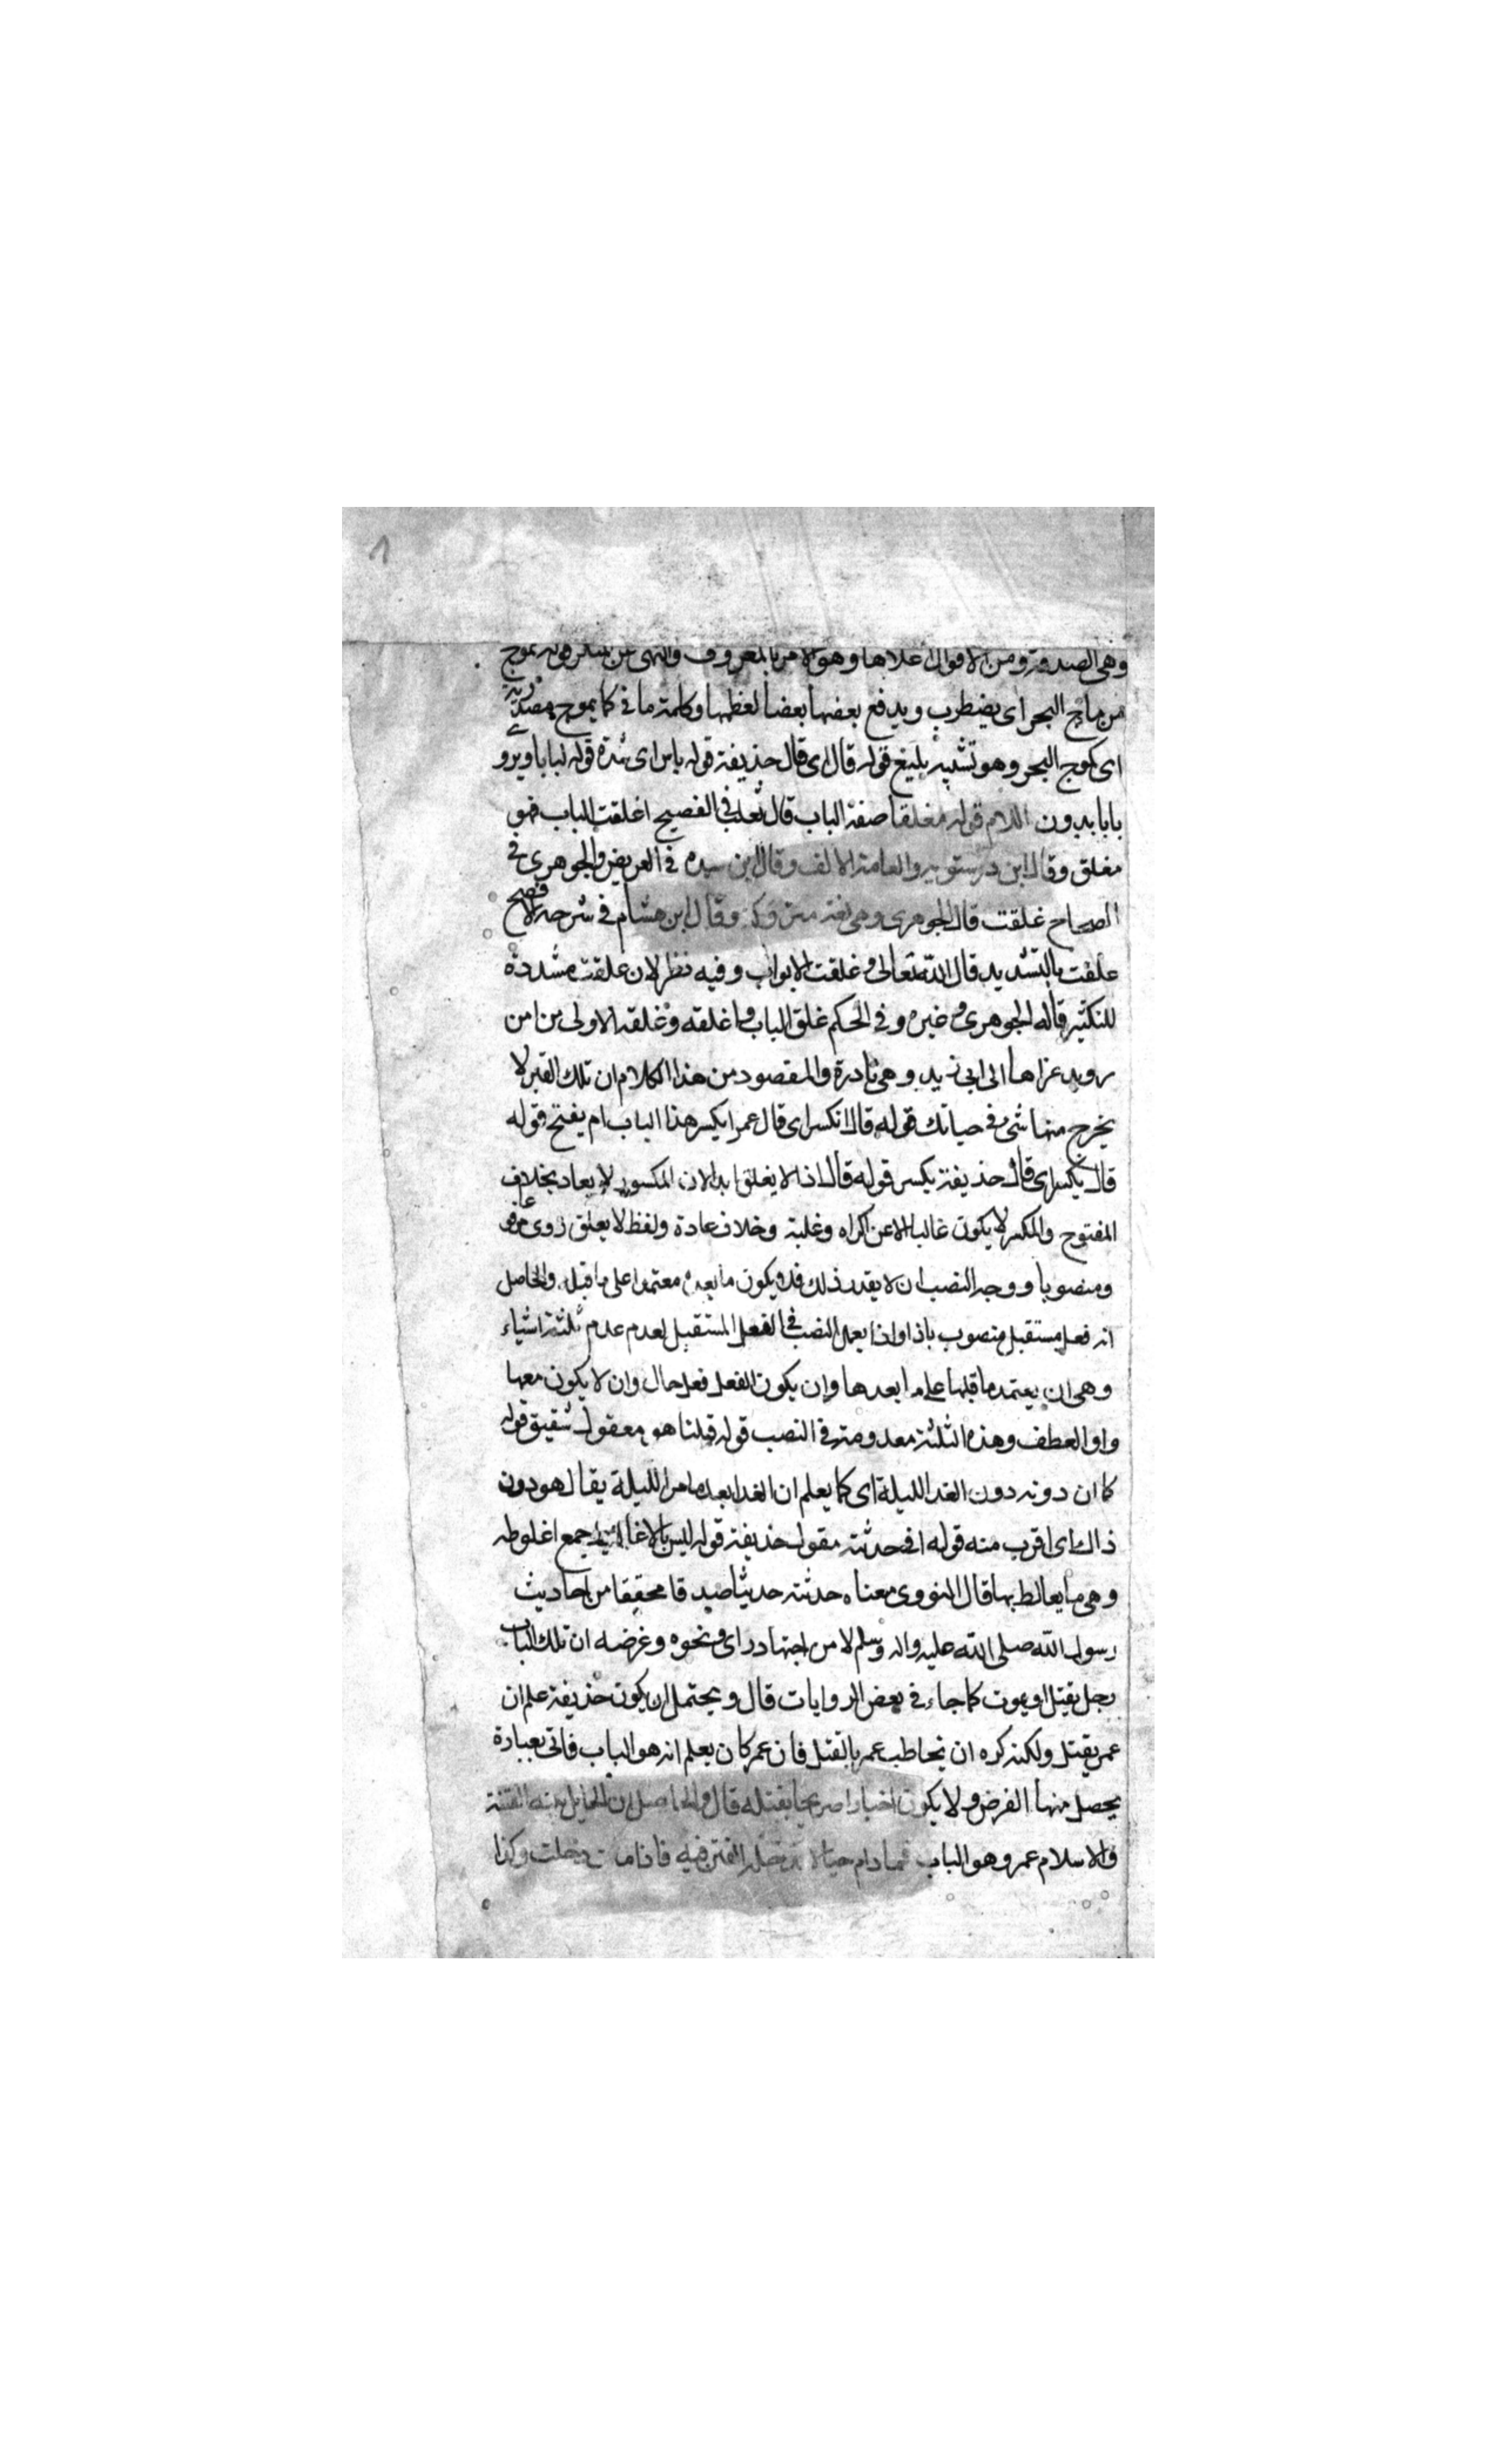 ٨
وهى الصدقة ومن الاقوال اعلاها وهو الامر بالمعروف والنهى عن المنكر قوله تموج
من ماج البحر اى يضطرب ويدفع بعضها بعضا لعظمها وكلمة ما فى كما يموج مصدرية
اى كموج البحر وهو تشبيه بليغ قوله قال اى قال حذيفة قوله باس اى شدة قوله لبابا ويرو
بابا بدون اللام قوله مغلقا صفة الباب قال ثعلب فى الفصيح اغلقت الباب فهو
مغلق وقال ابن درستويه والعامة الالف وقال ابن سيده فى العريض والجوهرى فى
الصحاح غلقت قال الجوهرى وهى لغة متروكة وقال ابن هشام فى شرحه الافصح
غلقت بالتشديد قال الله تعالى وغلقت الابواب وفيه نظر لان غلقت مشددة
للتكثير قاله الجوهرى وغيره وفى الحكم غلق الباب واغلقه وغلقه الاولى من امن
رويد عزاها الى ابى زيد وهى نادرة والمقصود من هذا الكلام ان تلك القبر لا
يخرج منها شئ فى حياتك قوله قال انكسر اى قال عمر ايكسر هذا الباب ام يفتح قوله
قال يكسر اى قال حذيفة يكسر قوله قال اذا لا يغلق ابدا لان المكسور لا يعاد بخلاف
المفتوح والمكسر لا يكون غالبا الا عن اكراه وغلبة وخلاف عادة ولفظ لا يعلق روى مرفوعا
ومنصوبا ووجه النصب ان لا يقدر ذلك فلا يكون ما بعده معتمدا على ما قبله والحاصل
انه فعل مستقبل منصوب باذا واذا يعمل النصب فى الفعل المستقبل لعدم عدم ثلثة اشياء
وهى ان يعتمد ما قبلها على ما بعدها وان يكون الفعل فعل حال وان لا يكون معها
واو العطف وهذه الثلثة معدومة فى النصب قوله قلنا هو معقول شقيق قوله
كما ان دونه دون الغد الليلة اى كما يعلم ان الغد ابعد ما من الليلة يقال هو دون
ذاك اى اقرب منه قوله انى حدثته مقول حذيفة قوله ليس بالاغاليط جمع اغلوطه
وهى ما يغالط بها قال النووى معناه حدثته حديثا صدقا محققا من احاديث
رسول الله صلى الله عليه واله وسلم لا من اجتهاد راى ونحوه وغرضه ان تلك الباب
رجل يقتل او يموت كما جاء فى بعض الروايات قال ويحتمل ان يكون حذيفة علم ان
عمر يقتل ولكنه كره ان يخاطب عمر بالقتل فان عمر كان يعلم انه هو الباب فاتى بعبارة
يحصل منها الغرض ولا يكون اخبارا صريحا بقتله قال والحاصل ان الحايل بينه الفتنة
والاسلام عمر وهو الباب فما دام حيا لا تدخل الفتن فيه فاذا مات دخلت وكذا